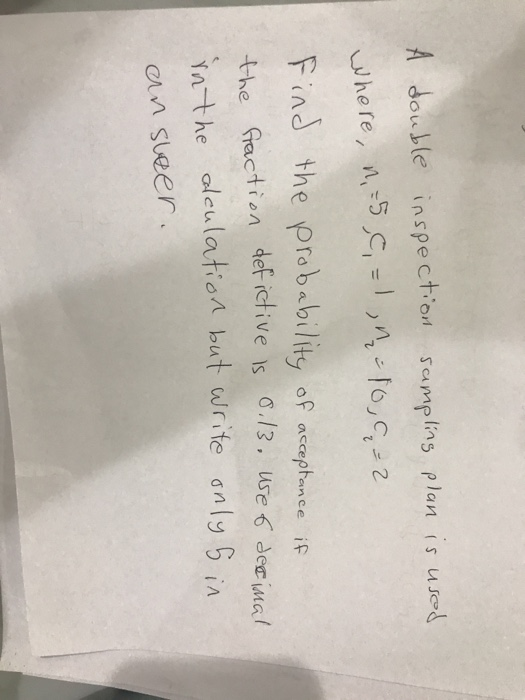 A double inspection sampling plan is used
where, n₁=5, c₁=1, n₂=10, c₂=2
Find the probability of acceptance if
the fraction defictive is 0.13. use 6 decimal
in the alculation but write only 5 in
answer.